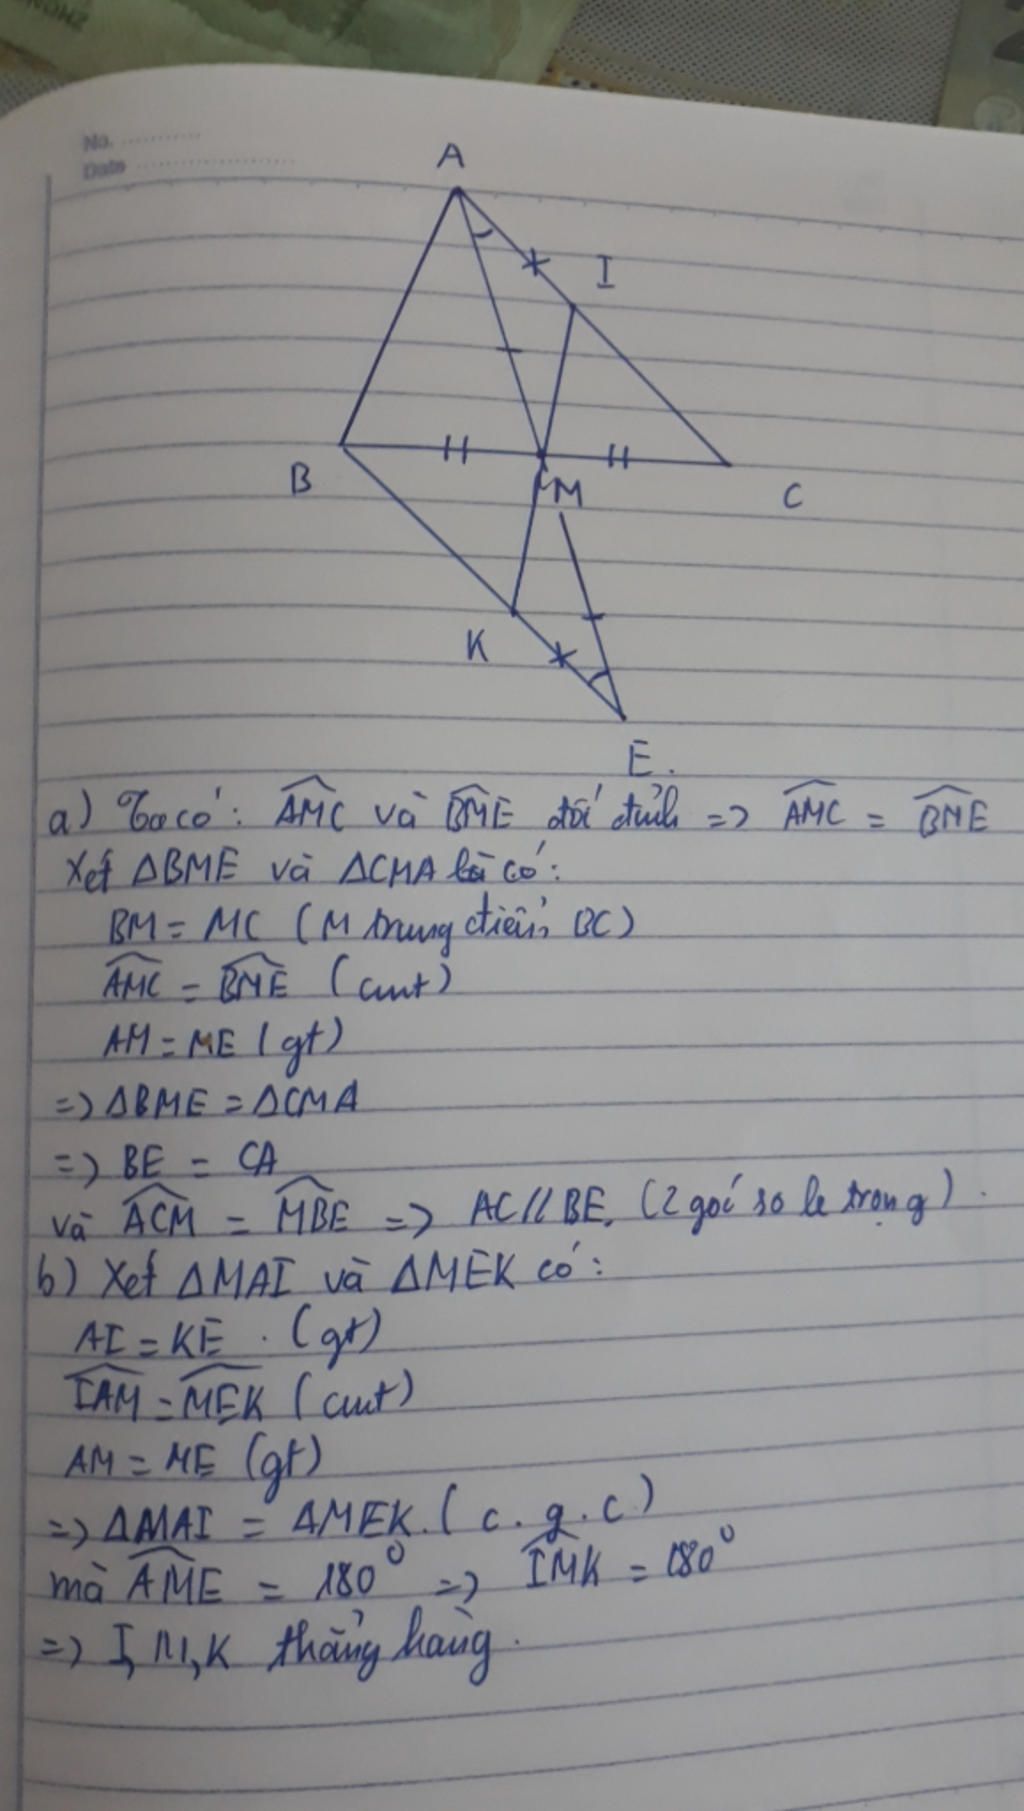 No.
Date
A
I
B
M
C
K
E.
a) Ta có: AMC và BME đối đỉnh => AMC = BME
Xét ΔBME và ΔCMA có:
BM = MC (M trung điểm BC)
AMC = BME (cmt)
AM = ME (gt)
=> ΔBME = ΔCMA
=> BE = CA
và ACM = MBE => AC // BE. (2 goí so le trong).
b) Xét ΔMAI và ΔMEK có:
AI = KE. (gt)
IAM = MEK (cmt)
AM = ME (gt)
=> ΔMAI = ΔMEK. (c.g.c)
mà AME = 180° => IMK = 180°
=> I, M, K thẳng hàng.